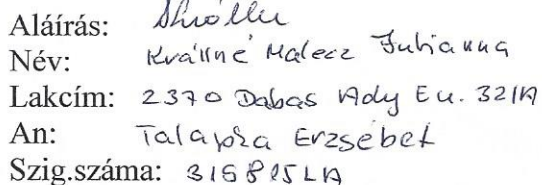 Aláírás:
Név: Krállné Malecz Julianna
Lakcím: 2370 Dabas Ady Eu. 32/A
An: Talapka Erzsébet
Szig.száma: 315815LA